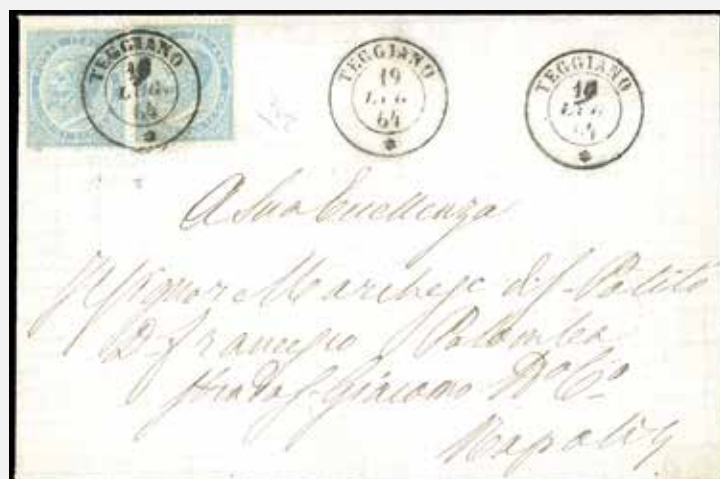 TEGGIANO
19
LUG.
64
TEGGIANO
19
LUG.
64
TEGGIANO
19
LUG
64
A Sua Eccellenza
Il Signor Marchese di S. Polito
D. Francesco Palomba
Strada S. Giacomo
Napoli